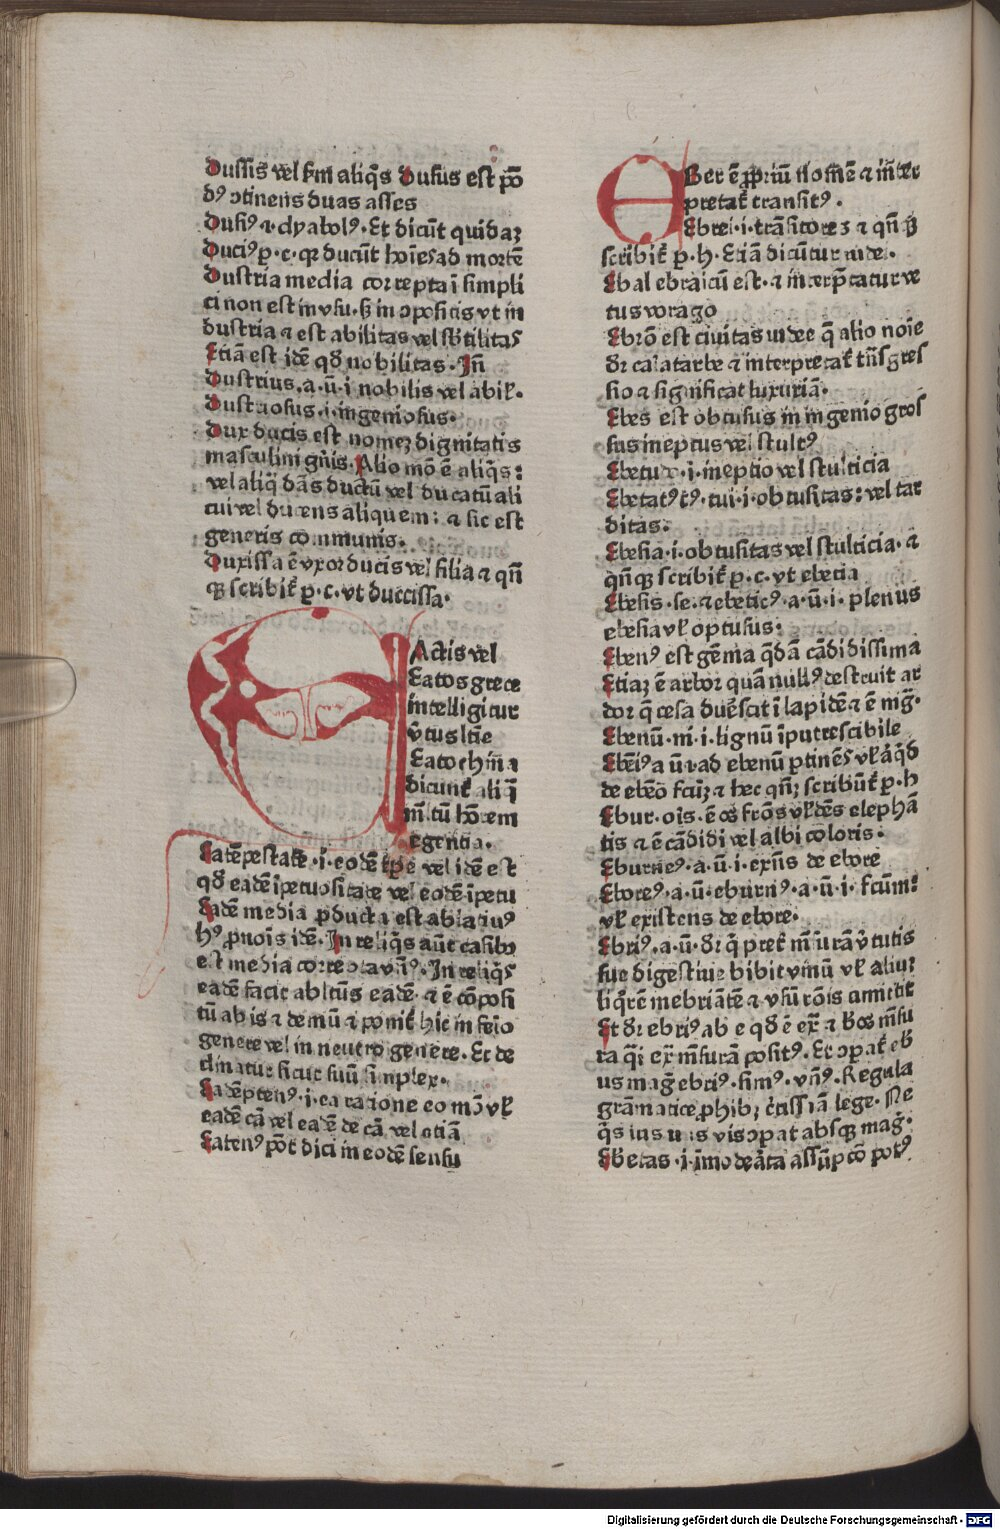 Dussis vel f̄m aliq̄s Dusus est põ
dꝰ ↄtinens duas asses
Dusiꝰ ⁊·dyabolꝰ·Et dicūt quidaꝫ
Duciꝰ ꝑ·c·qꝛ ducūt hoīes ad mortē
Dustria media correpta ī simpli
ci non est in vsu·ſꝫ in ↄpositis vt in
dustria ⁊ est abilitas vel sb̄tilitas
Etiā est idē qđ nobilitas·Iñ
Dustrius·a·ū·i nobilis vel abil̕·
Dustriosus·i·ingeniosus·
Dux ducis est nomeꝫ dignitatis
masculini gñis·Alio mō ē aliq̄s:
vel aliq̄ dās ductū vel ducatū ali
cui vel ducens aliquem: ⁊ sic est
generis communis·
Duxissa ē vxor ducis vel filia ⁊ qñ
qꝫ scribit̕ ꝑ·c·vt duccissa·
EActis vel
Eatos grece
intelligitur
v̄tus ltīe
Eatochin̄ ⁊
dicunt̕ aliq̄
egentia·
Eatēpestate·i·eodē tꝑe vel idē est
qđ eadē īpetuositate vel eodē īpetu
Eadē media ꝓducta est ablatiuꝰ
hꝰ ꝓnoīs idē·In reliq̄s aūt casibꝰ
eadē facit abltūs eadē·⁊ ē cōposi
tū ab is ⁊ demū ⁊ ponit̕ hic in feīo
genere vel in neutro genere·Et de
clinatur sicut suū simplex·
Eadēptenꝰ·i·ea ratione eo mō vl̕
eadē cā vel eadē de cā vel etiā
Eatenꝰ pōt dici in eodē sensu
EBer ē ꝓpriū nomē ⁊ int̄er
pretat̕ transitꝰ·
Ebrei·i·trāsitores ⁊ qñ
scribit̕ ꝑ·h·Etiā dicūtur iudei·
Ebal ebraicū est·⁊ interp̄tatur ve
tus vorago
Ebrō est ciuitas iudee q̄ alio noīe
dr̄ cariatarbe ⁊ interpretat̕ tñsgres
sio ⁊ significat luxuriā·
Ebes est obtusus in ingenio gros
sus ineptus vel stultꝰ
Ebetudo·i·ineptio vel stulticia
Ebetatꝰ tꝰ·tui·i·obtusitas: vel tar
ditas·
Ebesia·i·obtusitas vel stulticia·⁊
qñqꝫ scribit̕ ꝑ·c·vt ebecia
Ebesis·se·⁊ ebeticꝰ·a·ū·i·plenus
ebesia vl̕ optusus·
Ebenꝰ est gēma q̄dā cādidissima
Etiaꝫ ē arbor quā nullꝰ destruit ar
dor q̄ cesa duꝛescit ī lapidē ⁊ ē nig̕·
Ebenū·ni·i·lignū īputrescibile
Ebēiꝰ a ū i·ad ebenū ꝑtinēs vl̕ aliq̄d
de ebēo fcūꝫ ⁊ hec qñqꝫ scribūt̕ ꝑ h
Ebur·ois·ē os frōs vl̕ dēs elephā
tis ⁊ ē cādidi vel albi coloris·
Eburneꝰ·a·ū·i·exñs de ebore
Eboreꝰ·a·ū·eburnꝰ·a·ū·i·fcūm:
vl̕ existens de ebore·
Ebriꝰ·a·ū·dr̄ q̄ pret̕ mēsurā v̄tutis
sue digestiue bibit vinū vl̕ aliuꝫ
liq̄rē inebriātē ⁊ vsū rōis amittit
Et dr̄ ebriꝰ ab e qđ ē ex̄ ⁊ bos mēsu
ra q̄i ex mēsurā positꝰ·Et ↄpat̕ eb
us mag̕ ebriꝰ·simꝰ·vn̄ꝰ·Regula
grāmatice ꝓhibꝫ cr̄istiā lege·Ne
q̄s ius uus vis ↄpat absqꝫ mag̕·
Ebrietas·i·īmoderāta assūpcō potꝰ